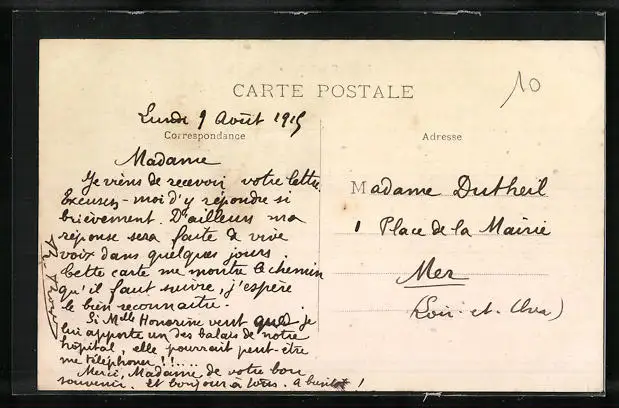 10
CARTE POSTALE
Lundi 9 Août 1915
Correspondance
Madame
Je viens de recevoir votre lettre.
Excusez-moi d'y répondre si
brièvement. D'ailleurs ma
réponse sera faite de vive
voix dans quelques jours.
Cette carte me montre le chemin
qu'il faut suivre, j'espère
le bien reconnaitre.
Si Melle Honorine veut que je
lui apporte un des balais de notre
hôpital, elle pourrait peut-être
me téléphoner !!....
Merci, Madame de votre bon
souvenir. et bonjour à tous. A bientôt !
Adresse
Madame Dutheil
1 Place de la Mairie
Mer
(Loir-et-Cher)